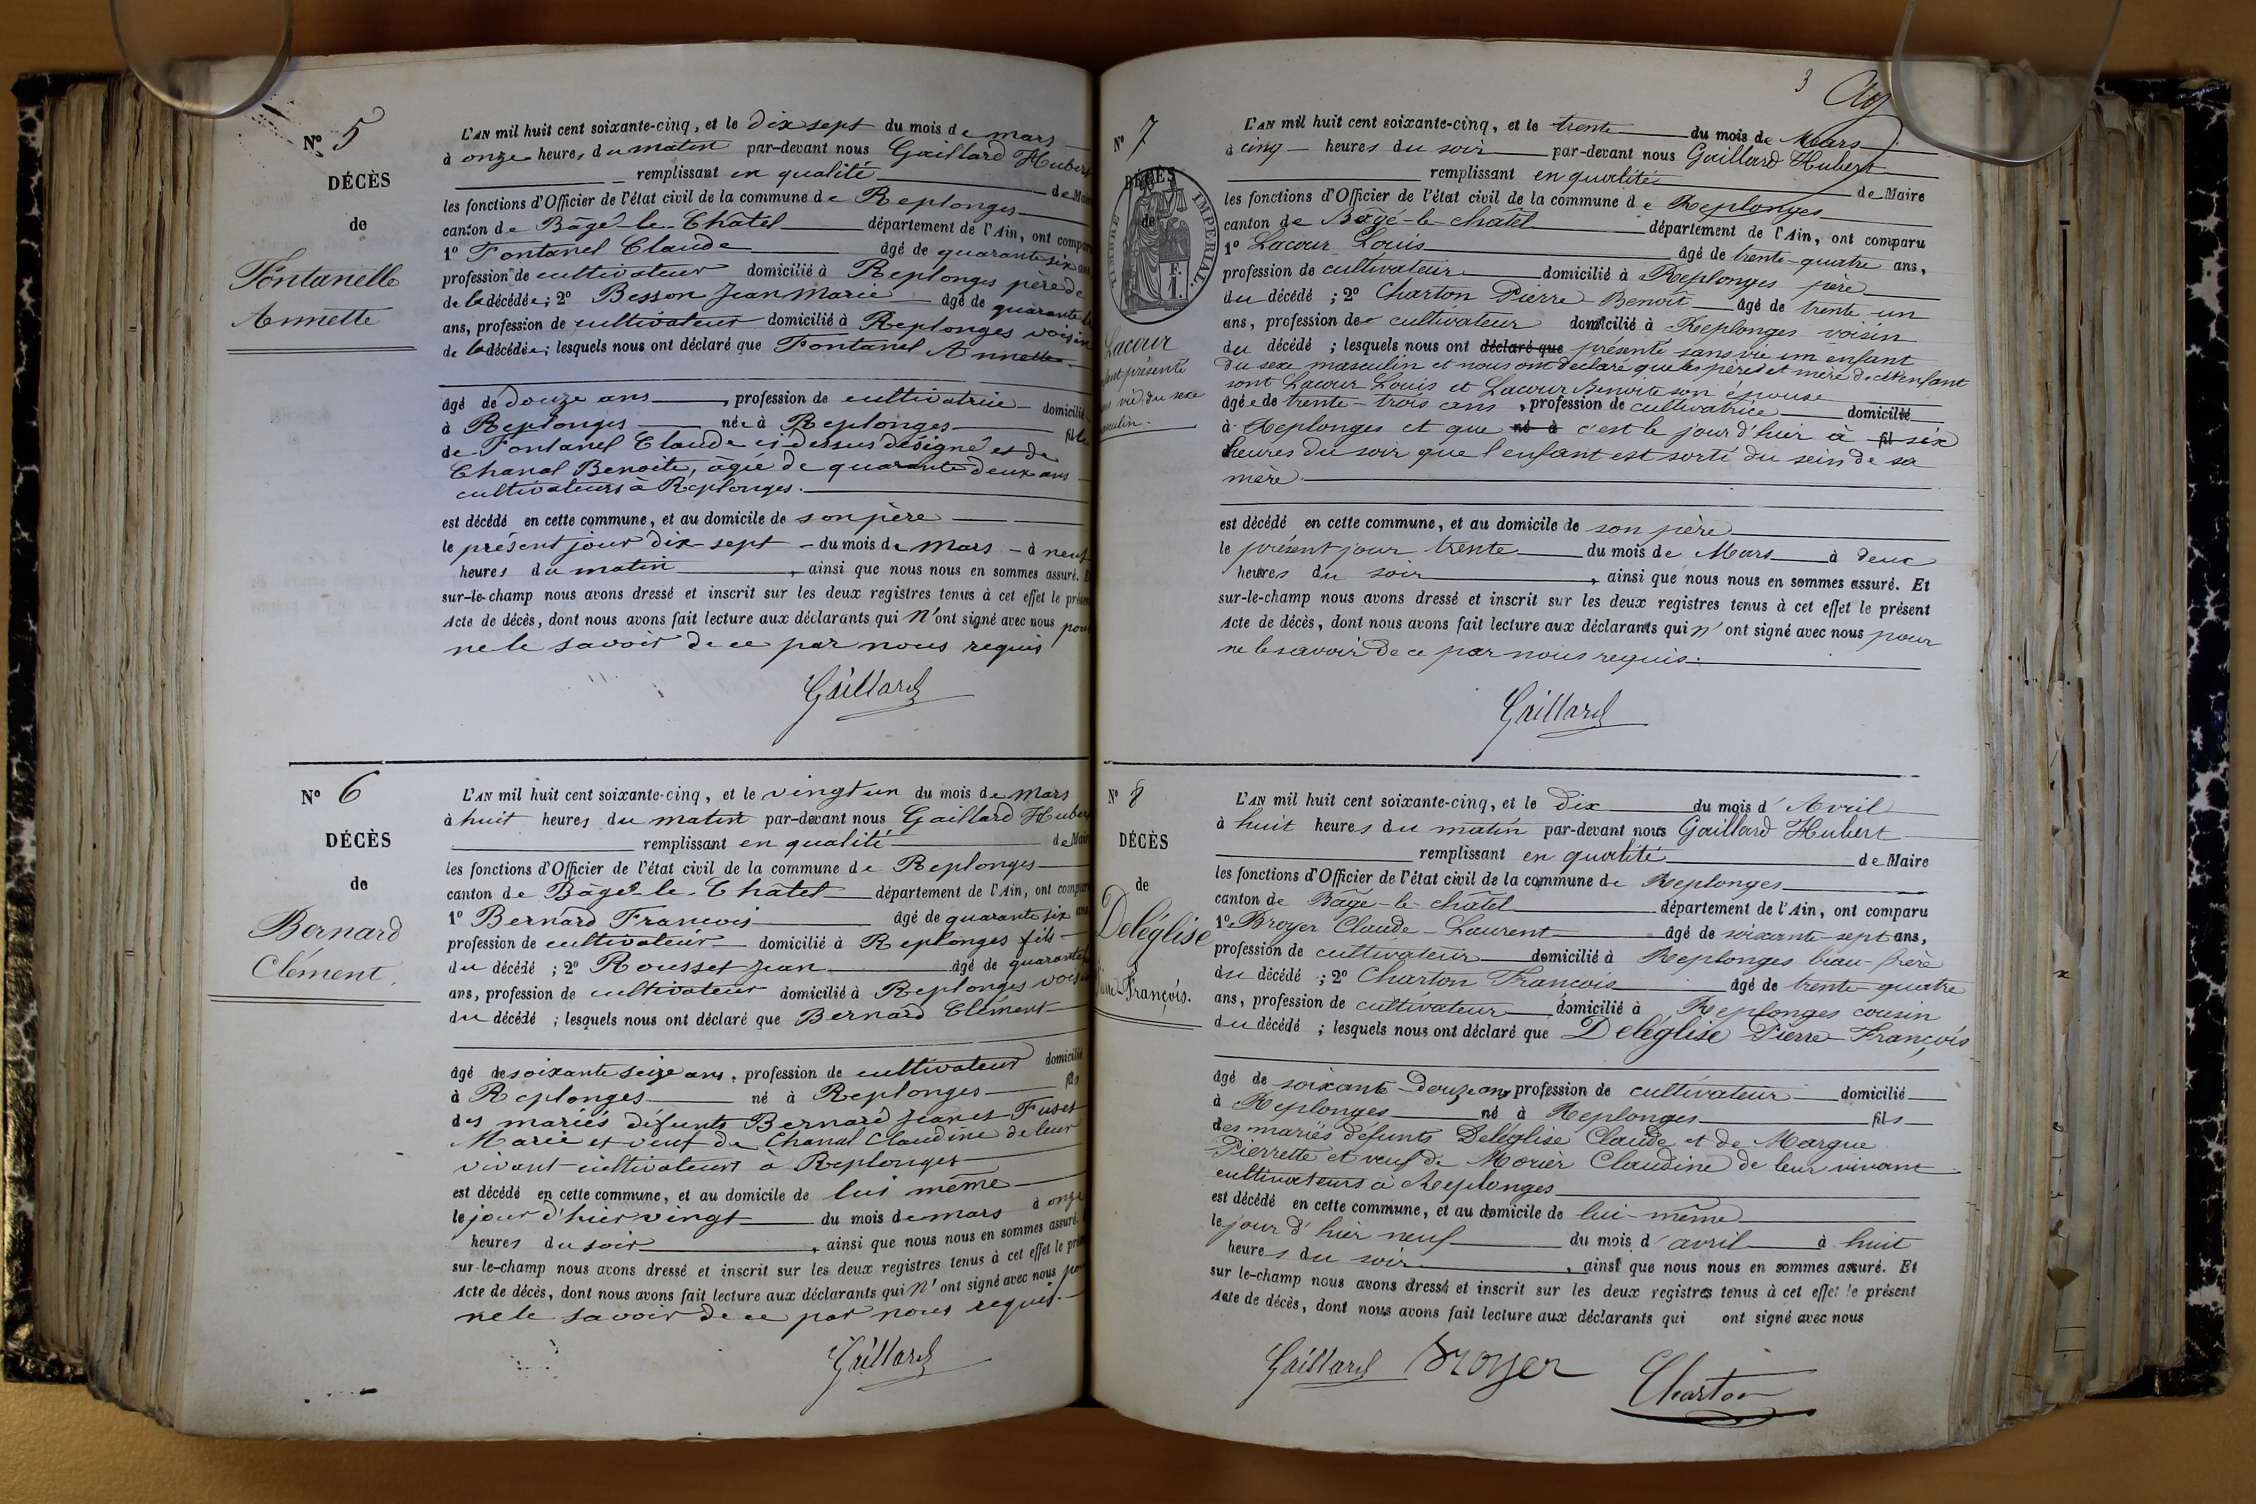 N° 5
DÉCÈS
de
Fontanelle
Annette
L'AN mil huit cent soixante-cinq, et le dix sept du mois de mars
à onze heures du matin par-devant nous Gaillard Hubert
remplissant en qualité de Maire
les fonctions d'Officier de l'état civil de la commune de Replonges
canton de Bâgé-le-Châtel département de l'Ain, ont comparu
1° Fontanel Claude âgé de quarante six ans
profession de cultivateur domicilié à Replonges père de
de la décédée; 2° Besson Jean Marie âgé de quarante
ans, profession de cultivateur domicilié à Replonges voisin
de la décédée; lesquels nous ont déclaré que Fontanel Annette
âgé de douze ans, profession de cultivatrice domicilié
à Replonges née à Replonges fille
de Fontanel Claude ci dessus désigné et de
Chanal Benoite, âgée de quarante deux ans
cultivateurs à Replonges.
est décédé en cette commune, et au domicile de son père
le présent jour dix-sept du mois de Mars à neuf
heures du matin, ainsi que nous nous en sommes assuré. Et
sur-le-champ nous avons dressé et inscrit sur les deux registres tenus à cet effet le présent
Acte de décès, dont nous avons fait lecture aux déclarants qui n'ont signé avec nous pour
ne le savoir de ce par nous requis
Gaillard
N° 6
DÉCÈS
de
Bernard
Clément.
L'AN mil huit cent soixante-cinq, et le vingt un du mois de Mars
à huit heures du matin par-devant nous Gaillard Hubert
remplissant en qualité de Maire
les fonctions d'Officier de l'état civil de la commune de Replonges
canton de Bâgé-le-Châtel département de l'Ain, ont comparu
1° Bernard Francois âgé de quarante six ans
profession de cultivateur domicilié à Replonges fils
du décédé; 2° Rousset Jean âgé de quarante
ans, profession de cultivateur domicilié à Replonges voisin
du décédé; lesquels nous ont déclaré que Bernard Clément
âgé de soixante seize ans, profession de cultivateur domicilié
à Replonges né à Replonges fils
des mariés défunts Bernard Jean et Fuset
Marie et veuf de Chanal Claudine de leur
vivant cultivateurs à Replonges
est décédé en cette commune, et au domicile de lui même
le jour d'hier vingt du mois de mars à onze
heures du soir, ainsi que nous nous en sommes assuré.
sur-le-champ nous avons dressé et inscrit sur les deux registres tenus à cet effet le présent
Acte de décès, dont nous avons fait lecture aux déclarants qui n'ont signé avec nous pour
ne le savoir de ce par nous requis.
Gaillard
3
N° 7
DÉCÈS
de
TIMBRE IMPÉRIAL.
Lacour
enfant présenté
sans vie du sexe
masculin.
L'AN mil huit cent soixante-cinq, et le trente du mois de Mars
à cinq heures du soir par-devant nous Gaillard Hubert
remplissant en qualité de Maire
les fonctions d'Officier de l'état civil de la commune de Replonges
canton de Bagé-le-chatel département de l'Ain, ont comparu
1° Lacour Louis âgé de trente-quatre ans,
profession de cultivateur domicilié à Replonges père
du décédé; 2° Charton Pierre-Benoît âgé de trente un
ans, profession de cultivateur domicilié à Replonges voisin
du décédé; lesquels nous ont déclaré que présenté sans vie un enfant
du sexe masculin et nous ont déclaré que les père et mère de cet enfant
sont Lacour Louis et Lacour Benoite son épouse
âgée de trente-trois ans, profession de cultivatrice domicilié
à Replonges et que né à c'est le jour d'hier à fil six
heures du soir que l'enfant est sorti du sein de sa
mère.
est décédé en cette commune, et au domicile de son père
le présent jour trente du mois de Mars à deux
heures du soir, ainsi que nous nous en sommes assuré. Et
sur-le-champ nous avons dressé et inscrit sur les deux registres tenus à cet effet le présent
Acte de décès, dont nous avons fait lecture aux déclarants qui n'ont signé avec nous pour
ne le savoir de ce par nous requis.
Gaillard
N° 8
DÉCÈS
de
Deléglise
Pierre-François.
L'AN mil huit cent soixante-cinq, et le dix du mois d'Avril
à huit heures du matin par-devant nous Gaillard Hubert
remplissant en qualité de Maire
les fonctions d'Officier de l'état civil de la commune de Replonges
canton de Bâgé-le-chatel département de l'Ain, ont comparu
1° Broyer Claude-Laurent âgé de soixante-sept ans,
profession de cultivateur domicilié à Replonges beau-frère
du décédé; 2° Charton Francois âgé de trente-quatre
ans, profession de cultivateur domicilié à Replonges cousin
du décédé; lesquels nous ont déclaré que Deléglise Pierre-François
âgé de soixante-douze ans profession de cultivateur domicilié
à Replonges né à Replonges fils
des mariés défunts Deléglise Claude et de Margue
Pierrette et veuf de Morier Claudine de leur vivant
cultivateurs à Replonges
est décédé en cette commune, et au domicile de lui-même
le jour d'hier neuf du mois d'avril à huit
heures du soir, ainsi que nous nous en sommes assuré. Et
sur le-champ nous avons dressé et inscrit sur les deux registres tenus à cet effet le présent
Acte de décès, dont nous avons fait lecture aux déclarants qui ont signé avec nous
Gaillard Broyer Charton